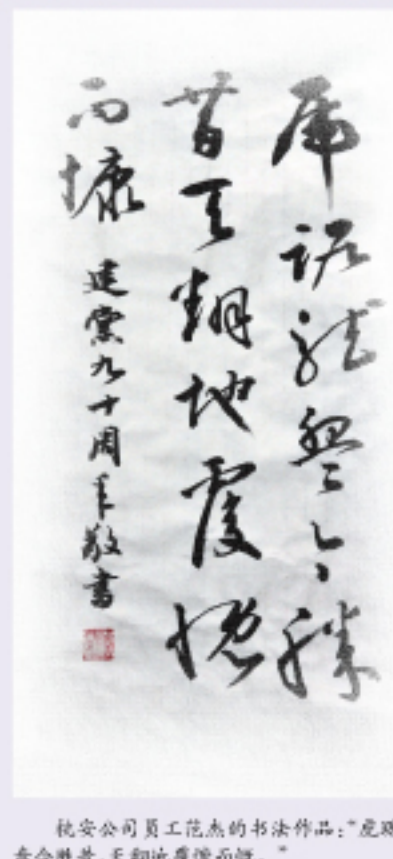 虎踞龍盤今勝
昔天翻地覆慨
而慷 建黨九十周年敬書
杭安公司员工范杰的书法作品:“虎踞
盘今胜昔,天翻地覆慨而慷。”